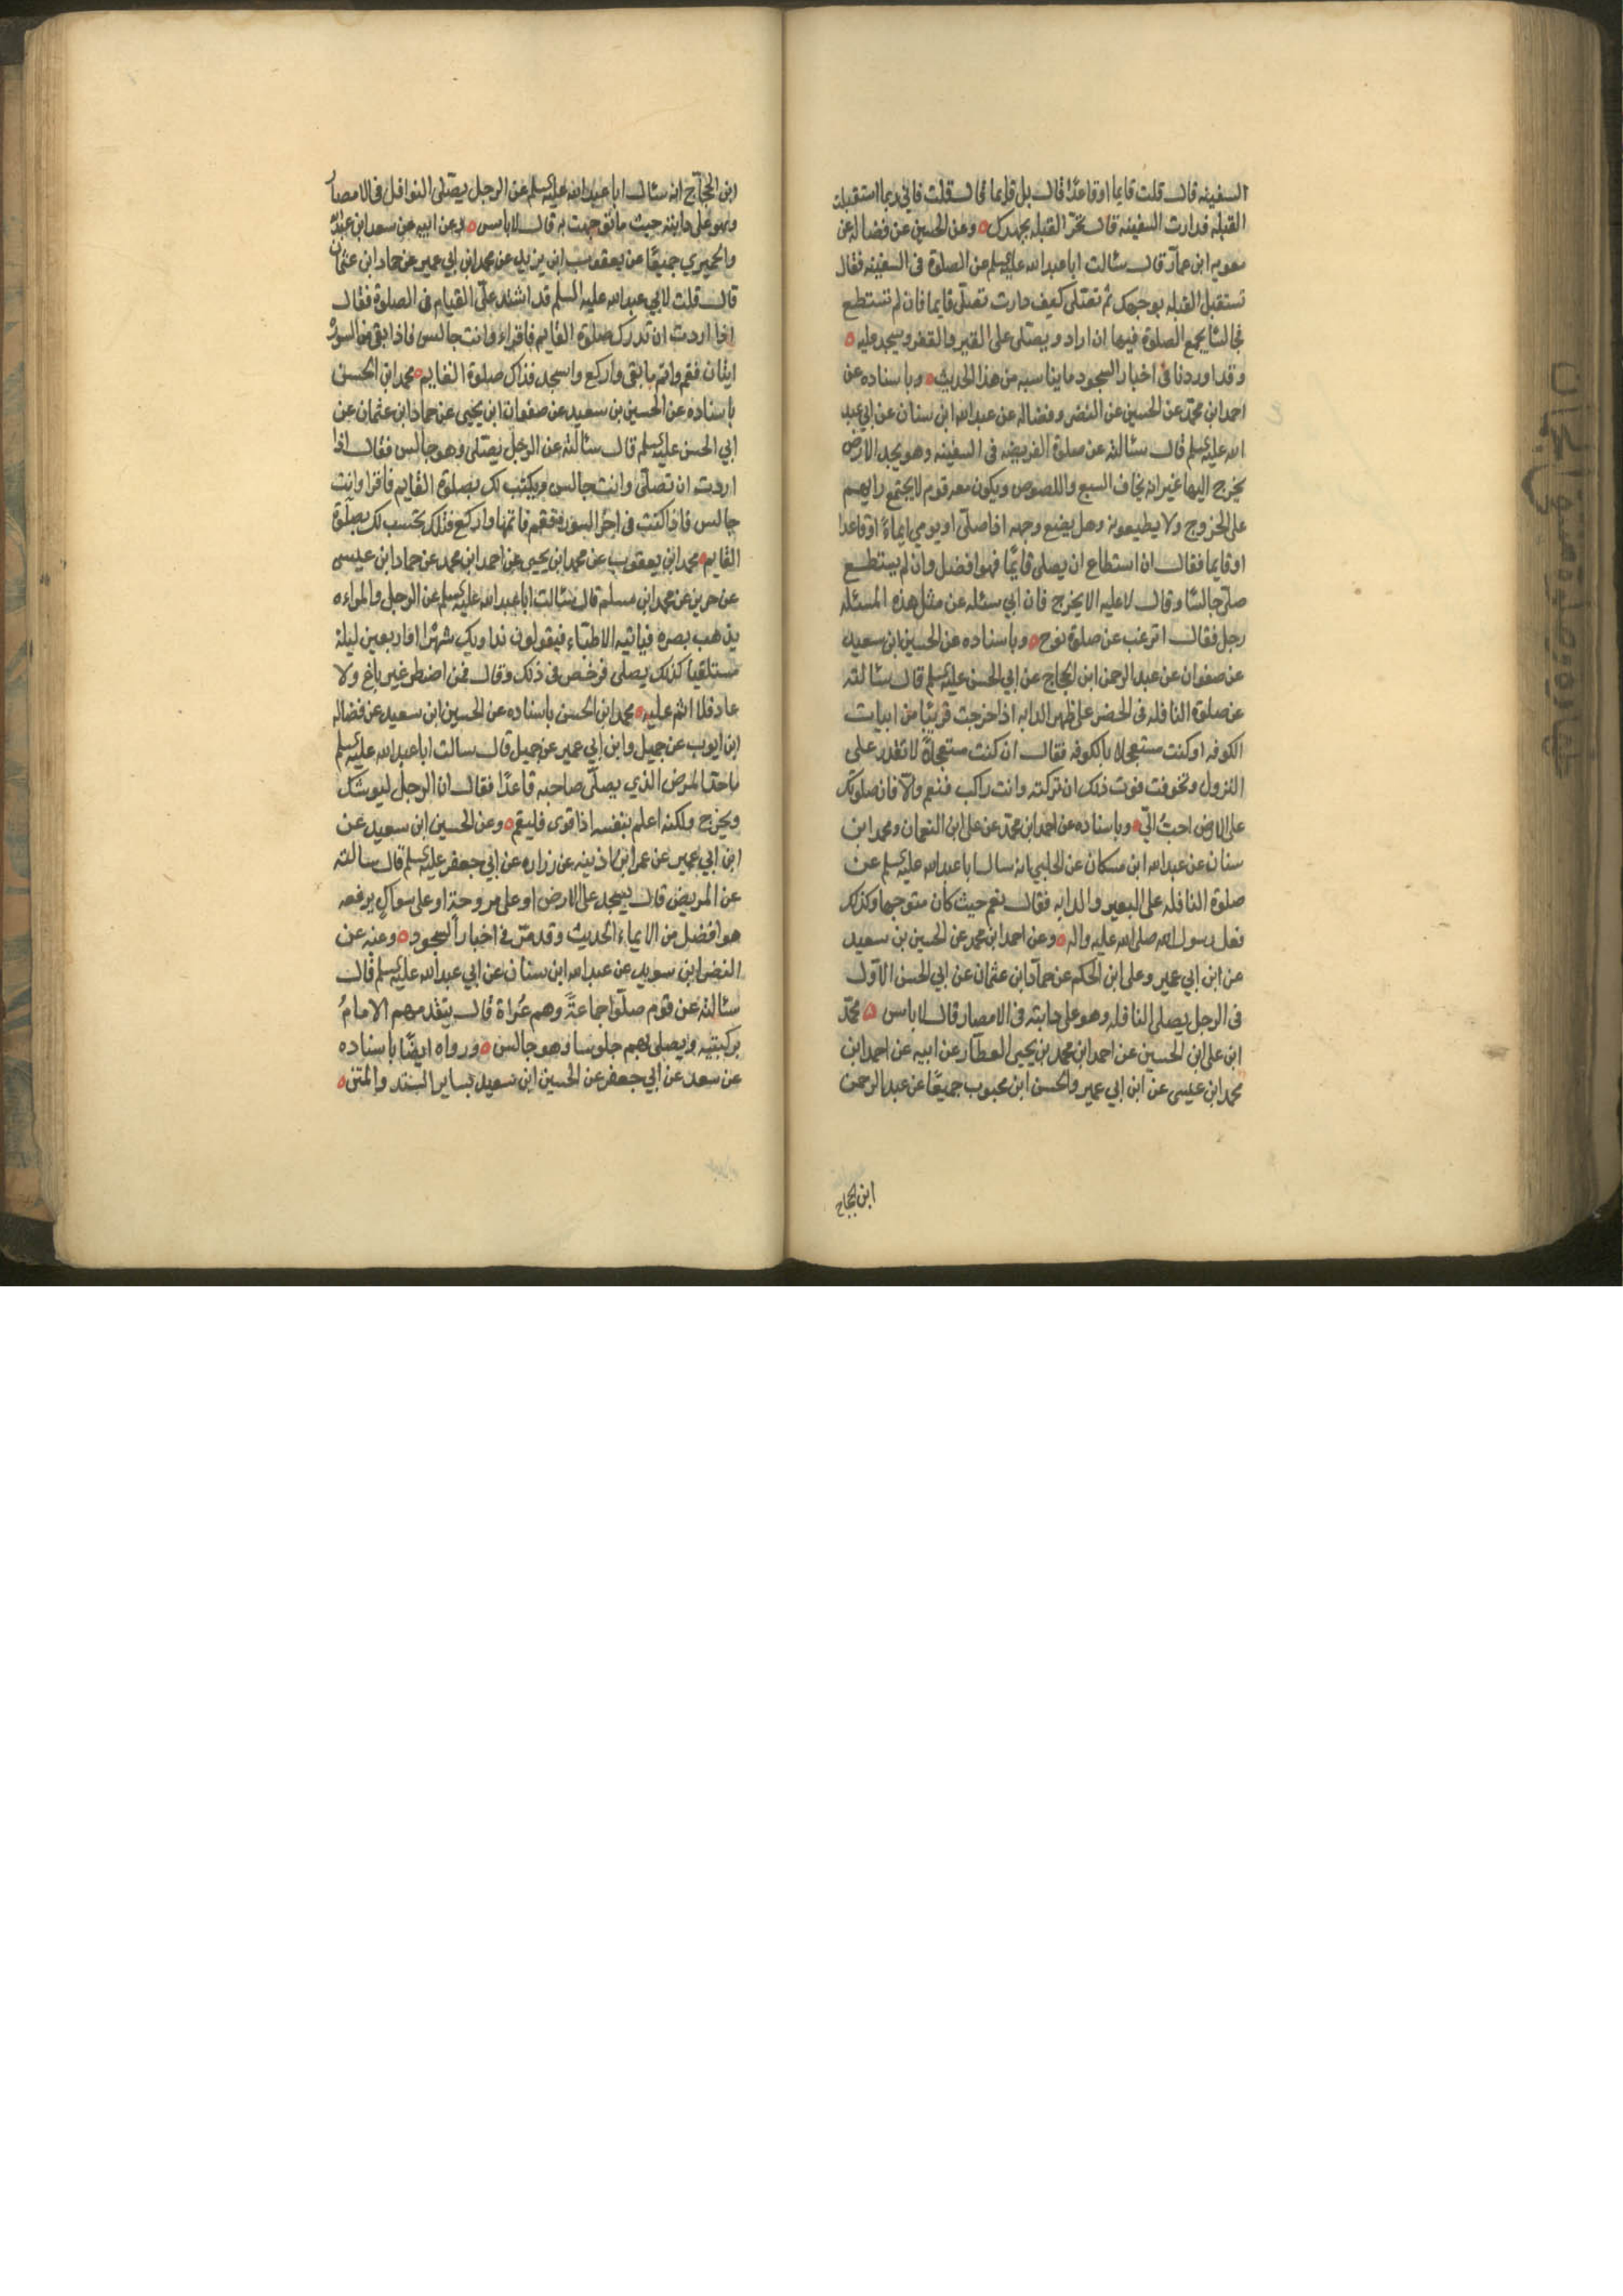 السفينه قال قلت قايما او قاعدًا قال بل قايما قال قلت فاني ربما استقبلت
القبله فدارت السفينه قال تحرّ القبله بجهدك ٥ وعن الحسين عن فضاله عن
معويه ابن عمار قال سئالت ابا عبد الله عليه السلم عن الصلوة فى السفينه فقال
تستقبل القبله بوجهك ثم تصلى كيف دارت تصلى قايما فان لم تستطع
فجالسًا يجمع الصلوة فيها ان اراد ويصلى على القير والقفر ويسجد عليه ٥
وقد اوردنا فى اخبار السجود ما يناسبه من هذا الحديث ٥ وباسناده عن
احمد ابن محمد عن الحسين عن النضر وفضاله عن عبد الله ابن سنان عن ابي عبد
الله عليه السلم قال سئالته عن صلوة الفريضه فى السفينه وهو يجد الارض
يخرج اليها غير انه يخاف السبع واللصوص ويكون معه قوم لا يجتمع رايهم
على الخروج ولا يطيعونه وهل يضع وجهه اذا صلى او يومي ايماءً او قاعدا
او قايما فقال ان استطاع ان يصلى قايمًا فهو افضل وان لم يستطع
صلى جالسًا وقال لا عليه الا يخرج فان ابي سئله عن مثل هذه المسئله
رجل فقال اترغب عن صلوة نوح ٥ وباسناده عن الحسين ابن سعيد
عن صفوان عن عبد الرحمن ابن الحجاج عن ابي الحسن عليه السلم قال سئالته
عن صلوة النافله فى الحضر على ظهر الدابه اذا خرجت قريبًا من ابيات
الكوفه او كنت مستعجلا بالكوفه فقال ان كنت مستعجلاً لا تقدر على
النزول وتخوفت فوت ذلك ان تركته وانت راكب فنعم والّا فان صلوتك
على الارض احبّ اليّ ٥ وباسناده عن احمد ابن محمد عن على ابن النعمان ومحمد ابن
سنان عن عبد الله ابن مسكان عن الحلبي انه سال ابا عبد الله عليه السلم عن
صلوة النافله على البعير والدابه فقال نعم حيث كان متوجها وكذلك
فعل رسول الله صلى الله عليه واله ٥ وعن احمد ابن محمد عن الحسين بن سعيد
عن ابن ابي عمير وعلى ابن الحكم عن حمّاد ابن عثمان عن ابي الحسن الاول
فى الرجل يصلى النافله وهو على دابته فى الامصار قال لا باس ٥ محمّد
ابن على ابن الحسين عن احمد ابن محمد بن يحيى العطار عن ابيه عن احمد ابن
محمد ابن عيسى عن ابن ابي عمير والحسن ابن محبوب جميعًا عن عبد الرحمن
ابن الحجاج
ابن الحجّاج انه سئال ابا عبد الله عليه السلم عن الرجل يصلى النوافل فى الامصار
وهو على دابته حيث ما توجهت به قال لا باس ٥ وعن ابيه عن سعد ابن عبد الله
والحميري جميعًا عن يعقوب ابن يزيد عن محمد ابن ابي عمير عن حماد ابن عثمان
قال قلت لابي عبد الله عليه السلم قد اشتد علىّ القيام فى الصلوة فقال
اذا اردت ان تدرك صلوة القايم فاقراء وانت جالس فاذا بقى من السوره
ايتان فقم واتم ما بقى واركع واسجد فذاك صلوة القايم ٥ محمد ابن الحسن
باسناده عن الحسين بن سعيد عن صفوان ابن يحيى عن حماد ابن عثمان عن
ابي الحسن عليه السلم قال سئالته عن الرجل يصلى وهو جالس فقال اذا
اردت ان تصلّى وانت جالس ويكتب لك بصلوة القايم فاقرا وانت
جالس فاذا كنت فى اخر السوره فقم فاتمها واركع فتلك تحتسب لك بصلوة
القايم ٥ محمد ابن يعقوب عن محمد ابن يحيى عن احمد ابن محمد عن حماد ابن عيسى
عن حريز عن محمد ابن مسلم قال سئالت ابا عبد الله عليه السلم عن الرجل والمراءه
يذهب بصره فياتيه الاطباء فيقولون نداويك شهرًا او اربعين ليلة
مستلقيًا كذلك يصلى فرخص فى ذلك وقال فمن اضطر غير باغ ولا
عاد فلا اثم عليه ٥ محمد ابن الحسن باسناده عن الحسين ابن سعيد عن فضاله
ابن ايوب عن جميل وابن ابي عمير عن جميل قال سالت ابا عبد الله عليه السلم
ما حدّ المرض الذي يصلّى صاحبه قاعدًا فقال ان الرجل ليوشك
ويخرج ولكنه اعلم بنفسه اذا قوى فليقم ٥ وعن الحسين ابن سعيد عن
ابن ابي عمير عن عمر ابن اذينه عن زراره عن ابي جعفر عليه السلم قال سالته
عن المريض قال يسجد على الارض او على مروحة او على سواك يرفعه
هو افضل من الايماء الحديث وقد مرّ فى اخبار السجود ٥ وعنه عن
النضر ابن سويد عن عبد الله ابن سنان عن ابي عبد الله عليه السلم قال
سئالته عن قوم صلّوا جماعةً وهم عُراة قال يتقدمهم الامامُ
بركبتيه ويصلى بهم جلوسا وهو جالس ٥ ورواه ايضًا باسناده
عن سعد عن ابي جعفر عن الحسين ابن سعيد بساير السند والمتن ٥